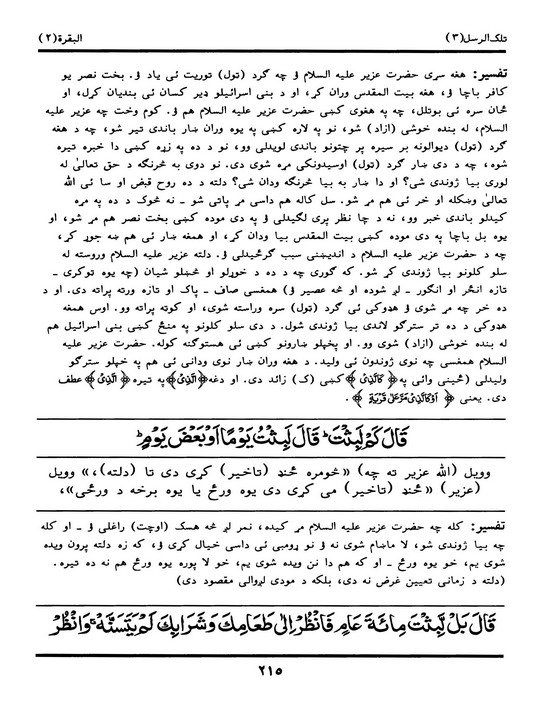 تلك الرسل(٣)
البقرة(٢)
تفسير: هغه سړی حضرت عزیر علیه السلام ؤ چه ګرد (ټول) توریت ئی یاد ؤ. بخت نصر یو
کافر باچا ؤ، هغه بیت المقدس وران کړ، او د بنی اسرائیلو ډیر کسان ئی بندیان کړل، او
ځان سره ئی بوتلل، چه په هغوی کښی حضرت عزیر علیه السلام هم ؤ. کوم وخت چه عزیر علیه
السلام، له بنده خوشی (ازاد) شو، نو په لاره کښی په یوه وران ښار باندی تیر شو، چه د هغه
ګرد (ټول) دیوالونه پر سیره پر چتونو باندی لویدلی وو، نو د ده په زړه کښی دا خبره تیره
شوه، چه د دی ښار ګرد (ټول) اوسیدونکی مړه شوی دی. نو دوی به څرنګه د حق تعالیٰ له
لوری بیا ژوندی شی؟ او دا ښار به بیا څرنګه ودان شی؟ دلته د ده روح قبض او سا ئی الله
تعالیٰ وښکله او خر ئی هم مړ شو. سل کاله هم داسی مړ پاتی شو - نه څوک د ده په مړه
کیدلو باندی خبر وو، نه د چا نظر پری لګیدلی ؤ په دی موده کښی بخت نصر هم مړ شو، او
یوه بل باچا په دی موده کښی بیت المقدس بیا ودان کړ، او هغه ښار ئی هم ښه جوړ کړ،
چه د حضرت عزیر علیه السلام د اندیښنی سبب ګرځیدلی ؤ. دلته عزیر علیه السلام وروسته له
سلو کلونو بیا ژوندی کړ شو. که ګوری چه د ده د خوړلو او څښلو شیان (چه یوه ټوکری -
تازه انځر او انګور - لږ شوده او څه عصیر ؤ) همغسی صاف - پاک او تازه ورته پراته دی. او د
ده خر چه مړ شوی ؤ هډوکی ئی ګرد (ټول) سره وراسته شوی، او کوټه پراته وو. اوس همغه
هډوکی د ده تر سترګو لاندی بیا ژوندی شول. د دی سلو کلونو په منځ کښی بنی اسرائیل هم
له بنده خوشی (ازاد) شوی وو. او پخپلو ښارونو کښی ئی هستوګنه کوله. حضرت عزیر علیه
السلام همغسی چه نوی ژوندون ئی ولید. د هغه وران ښار نوی ودانی ئی هم په خپلو سترګو
ولیدلی (ځینی وائی په ﴿ كَالَّذِىْ ﴾ کښی (ک) زائد دی. او دغه ﴿ الَّذِىْ ﴾ په تیره ﴿ الَّذِىْ ﴾ عطف
دی. یعنی ﴿ اَوْكَالَّذِىْ مَرَّ عَلٰى قَرْيَةٍ ﴾ .
قَالَ كَمْ لَبِثْتَ ؕ قَالَ لَبِثْتُ يَوْمًا اَوْ بَعْضَ يَوْمٍ ؕ
وویل (الله عزیر ته چه) «څومره ځنډ (تاخیر) کړی دی تا (دلته)،» وویل
(عزیر) «ځنډ (تاخیر) می کړی دی یوه ورځ یا یوه برخه د ورځی»،
تفسیر: کله چه حضرت عزیر علیه السلام مړ کیده، نمر لږ څه هسک (اوچت) راغلی ؤ - او کله
چه بیا ژوندی شو، لا ماښام شوی نه ؤ نو ړومبی ئی داسی خیال کړی ؤ، که زه دلته پرون ویده
شوی یم، خو یوه ورځ - او که هم دا نن ویده شوی یم، خو لا پوره یوه ورځ هم نه ده تیره.
(دلته د زمانی تعیین غرض نه دی، بلکه د مودی لږوالی مقصود دی)
قَالَ بَلْ لَّبِثْتَ مِائَةَ عَامٍ فَانْظُرْ اِلٰى طَعَامِكَ وَشَرَابِكَ لَمْ يَتَسَنَّهْ ۚ وَانْظُرْ
٢١٥